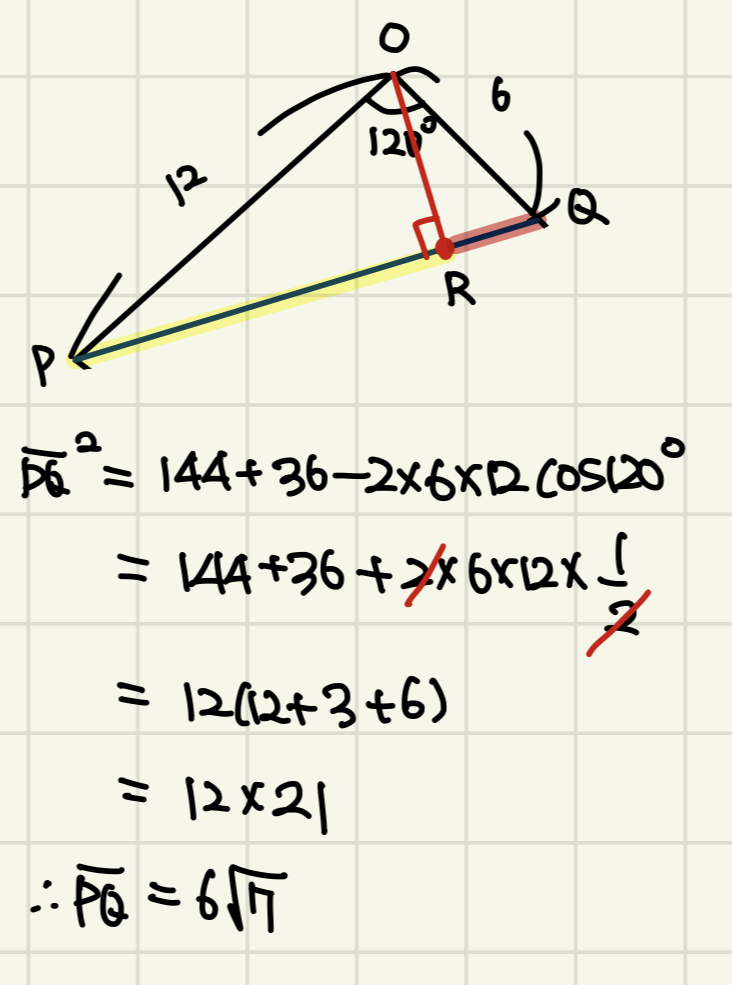 O
6
120°
12
Q
R
P
PQ² = 144+36-2×6×12 cos120°
= 144+36+2×6×12×1/2
= 12(12+3+6)
= 12×21
∴PQ = 6√7